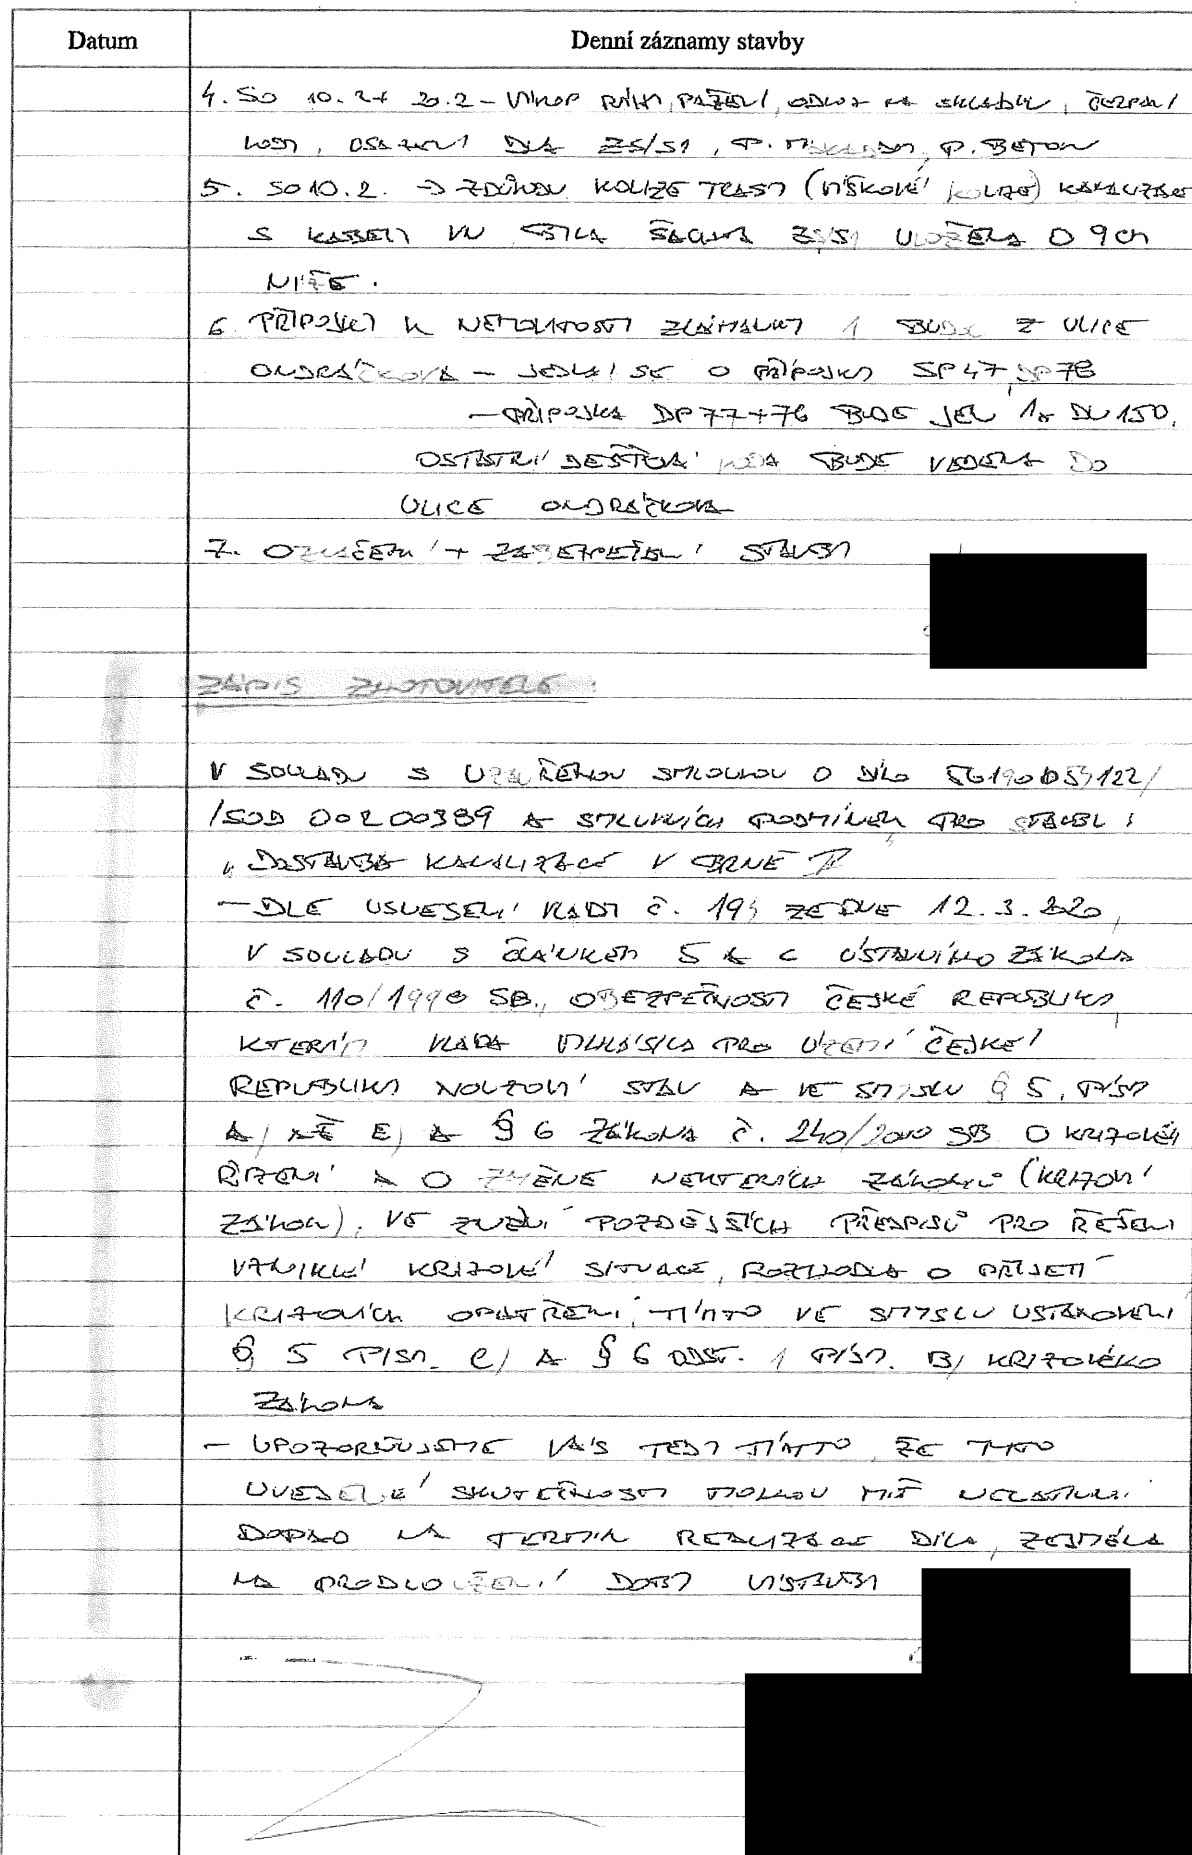 Datum
Denní záznamy stavby
4. SO 10.2 + 20.2 – VÝKOP RÝHY, PAŽENÍ, ODVOZ NA SKLÁDKU, ČERPÁNÍ
VODY, OSAZENÍ DLA ZS/S1, P. BETON
5. SO 10.2. → Z DŮVODU KOLIZE TRASY (VÝŠKOVÉ KOLIZE) KANALIZACE
S KABELY VN BYLA ŠACHTA ULOŽENA O 9 CM
NÍŽE.
6. PŘÍPOJKY K NEMOVITOSTI ZLÁMANKY 1 BUDE Z ULICE
ONDRÁČKOVA – JEDNÁ SE O PŘÍPOJKY SP47, DP78
– PŘÍPOJKA DP77+76 BUDE JEN 1x DN150.
OSTATNÍ DEŠŤOVÁ VODA BUDE VEDENA DO
ULICE ONDRÁČKOVA
7. OZNAČENÍ + ZABEZPEČENÍ STAVBY
ZÁPIS ZHOTOVITELE:
V SOULADU S UZAVŘENOU SMLOUVOU O DÍLO 5619
/SOD 00200389 A SMLUVNÍCH PODMÍNEK PRO STAVBU:
"DOSTAVBA KANALIZACE V BRNĚ II
– DLE USNESENÍ VLÁDY Č. 194 ZE DNE 12.3.2020,
V SOULADU S ČLÁNKEM 5 A 6 ÚSTAVNÍHO ZÁKONA
Č. 110/1998 SB., O BEZPEČNOSTI ČESKÉ REPUBLIKY,
KTERÝM VLÁDA VYHLÁSILA PRO ÚZEMÍ ČESKÉ
REPUBLIKY NOUZOVÝ STAV A VE SMYSLU § 5, PÍSM
A) AŽ E) A § 6 ZÁKONA Č. 240/2000 SB O KRIZOVÉM
ŘÍZENÍ A O ZMĚNĚ NĚKTERÝCH ZÁKONŮ (KRIZOVÝ
ZÁKON), VE ZNĚNÍ POZDĚJŠÍCH PŘEDPISŮ PRO ŘEŠENÍ
VZNIKLÉ KRIZOVÉ SITUACE, ROZHODLA O PŘIJETÍ
KRIZOVÝCH OPATŘENÍ, TÍMTO VE SMYSLU USTANOVENÍ
§ 5 PÍSM. C) A § 6 ODST. 1 PÍSM. B) KRIZOVÉHO
ZÁKONA
– UPOZORŇUJEME VÁS TEDY TÍMTO, ŽE TYTO
UVEDENÉ SKUTEČNOSTI MOHOU MÍT NEGATIVNÍ
DOPAD NA TERMÍN REALIZACE DÍLA, ZEJMÉNA
NA PRODLOUŽENÍ DOBY VÝSTAVBY